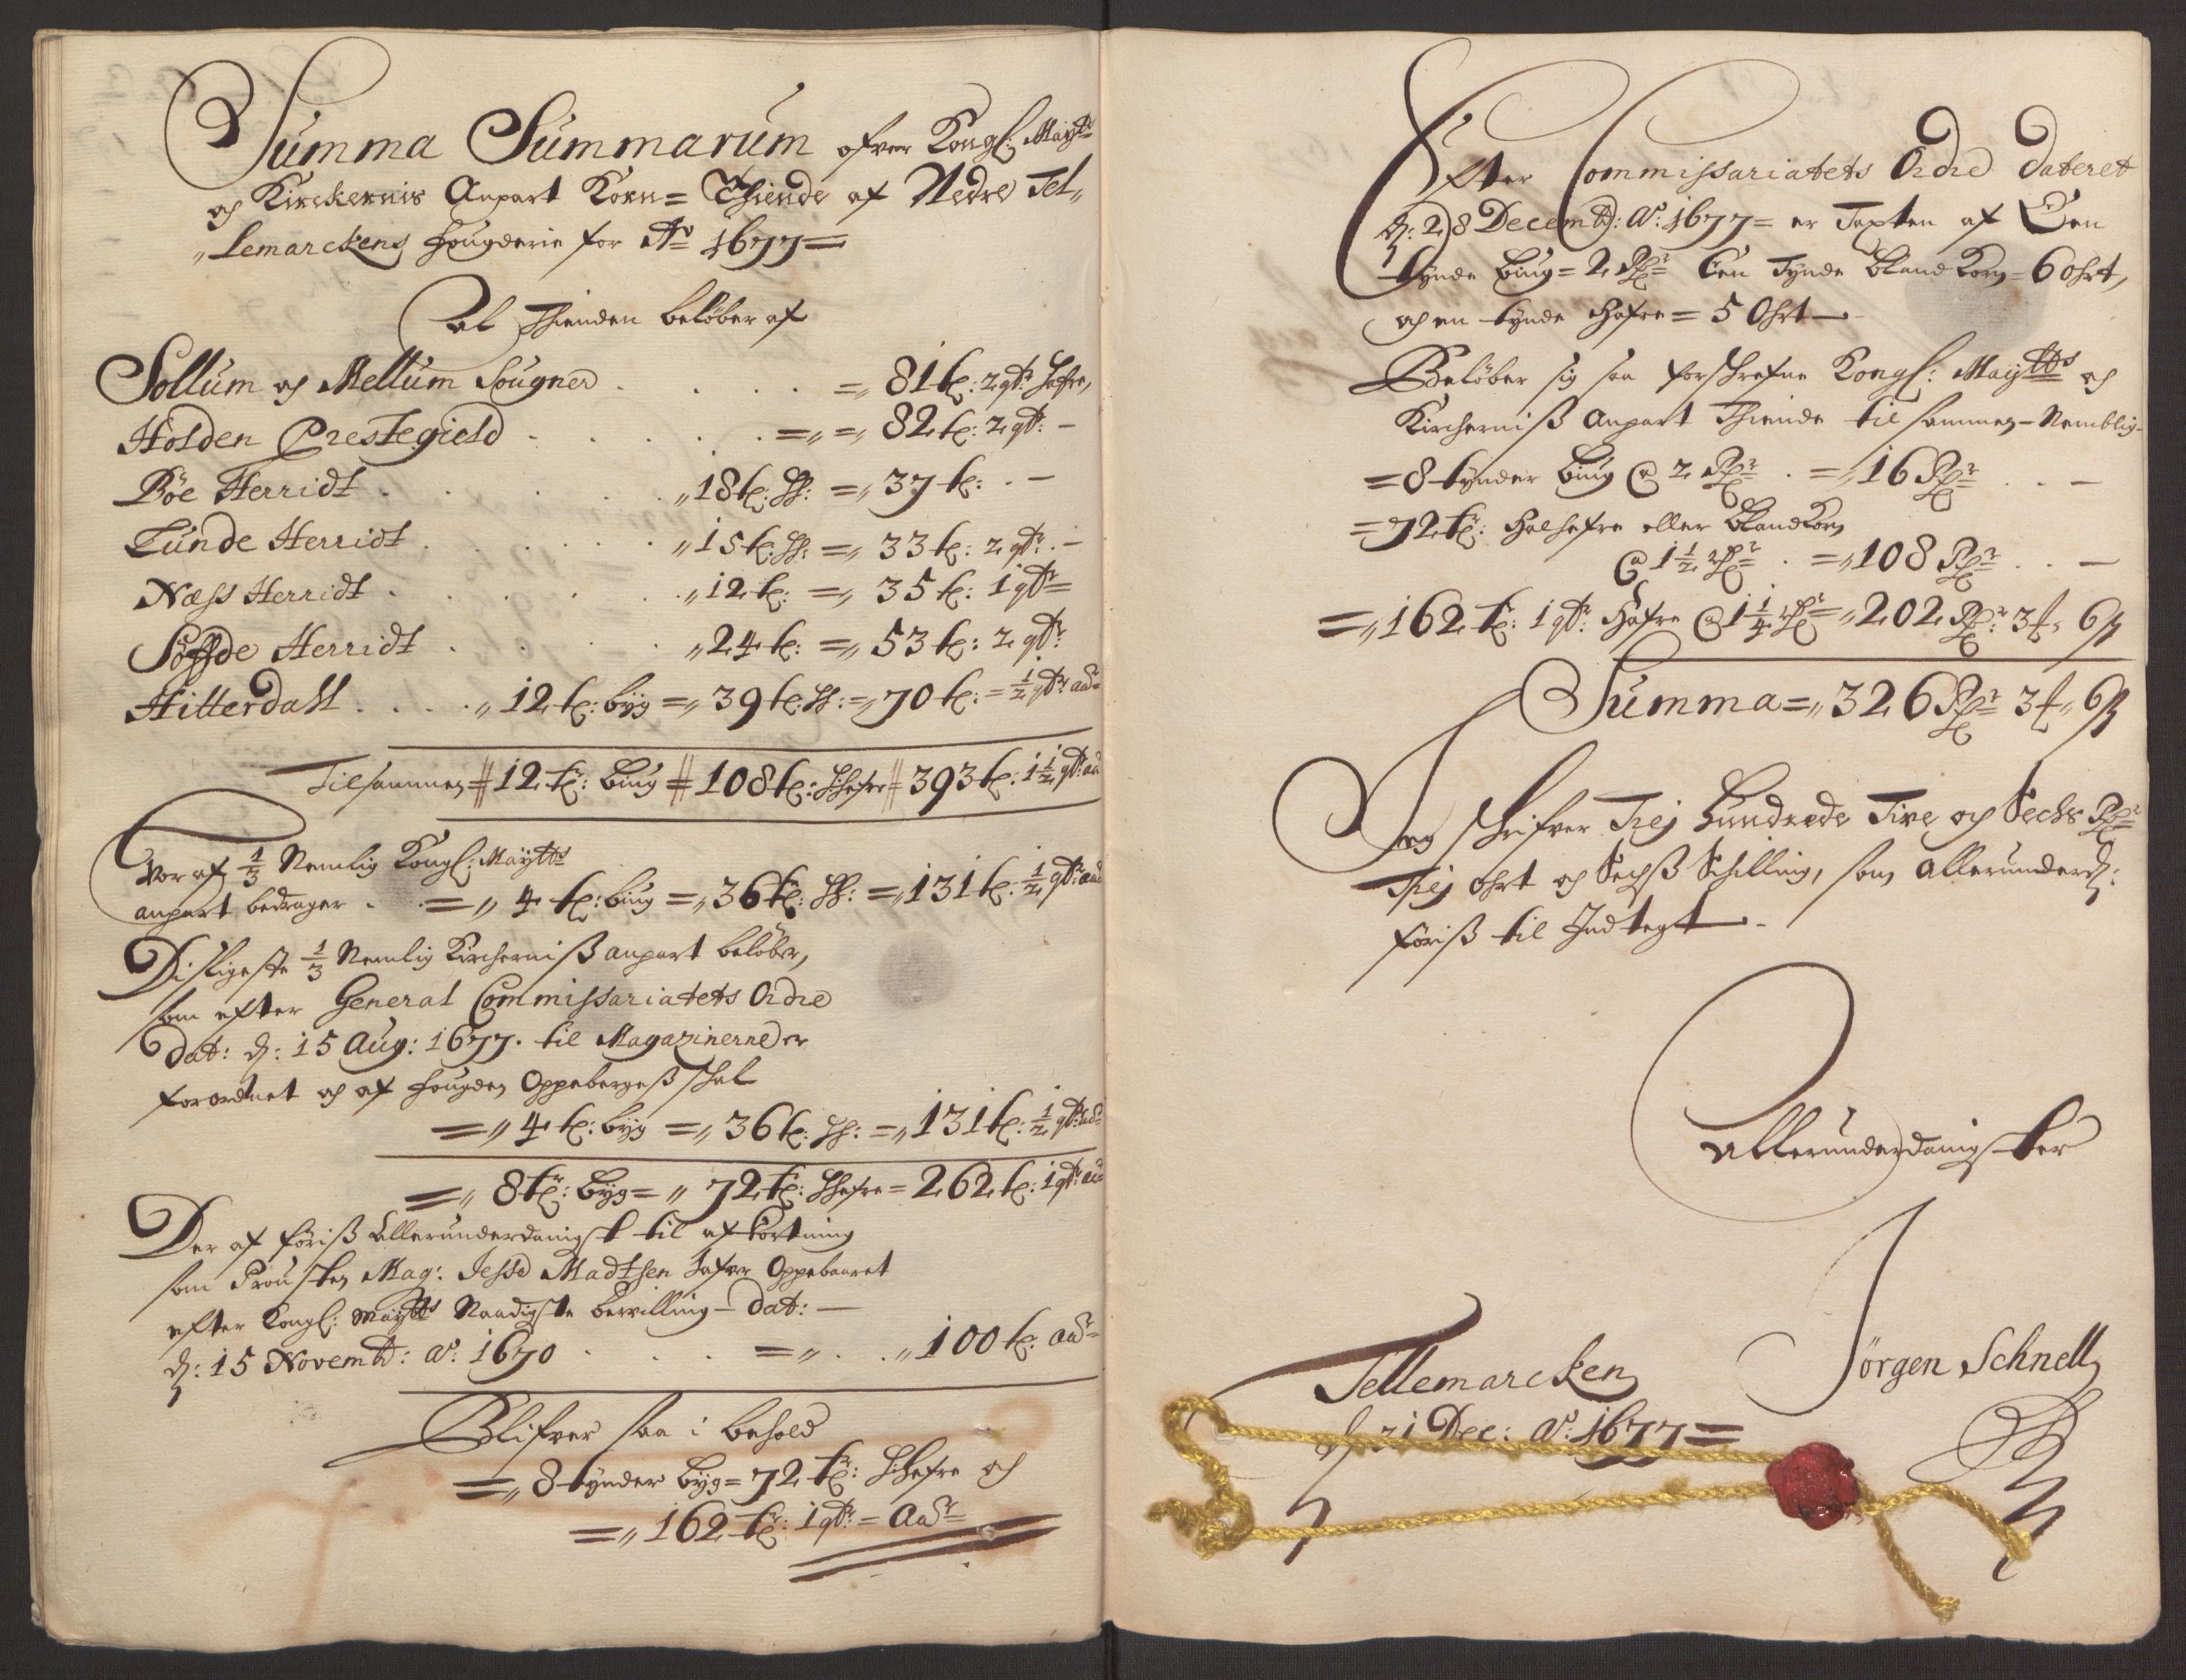 Summa Summarum ofver Kongl: Maytz
og Kirckernis Anpart Korn= Thiende af Nedre Tel„
„lemarckens fougderie for Ao 1677=
Al Thienden beløber af
Sollum og Mellum Sougner . . . . =„ 81 tr: 2 qtr: hafre,
Holden Prestegield . . . . . =„=„ 82 tr: 2 qtr: -
Böe Herridt . . . . . „18 tr: Bl: =„ 37 tr: . -
Lunde Herridt . . . . . „15 tr: Bl: =„ 33 tr: 2 qtr: . -
Næss Herridt . . . . . „12 tr: =„ 35 tr: 1 qtr=
Söffde Herridt . . . . „24 tr: =„ 53 tr: 2 qtr:
Hitterdall . . . . „12 tr: byg =„ 39 tr: Bl: =„ 70 tr: = ½ qtr: ad=
Tilsammen 12 tr: Biug 108 tr: 393 tr: 1½ qtr: ad
Vor af 1/3 Nemlig Kongl: Maytts
anpart bedrager . =„ 4 tr: biug =„ 36 tr: Bl: =„ 131 tr: ½ qtr: ad
Disligeste 1/3 Nemlig Kircherniß anpart beløber,
som efter General Commissariatets Ordre
dat: d: 15 Aug: 1677. til Magazinerne er
forordnet og af fougden Oppebergeß schal
=„ 4 tr: byg =„ 36 tr: Bl: =„ 131 tr: ½ qtr: ad=
=„ 8 tr: Byg =„ 72 tr: = 262 tr: 1 qtr: ad
Der af føriß Allerunderdanigst til afkortning
som Prousten Mag: Jesse Madtsen hafver Oppebaaret
efter Kongl: Maytts Naadigste bevilling - dat: -
d: 15 Novemb: ao: 1670 . . . =„ . . „100 tr: ad=
Blifver saa i behold
=„ 8 tynder byg = 72 tr: og
=„ 162 tr: 1 qtr: = ad=
Efter Commissariatets Ordre dateret
d: 28 Decemb: Ao: 1677 = er Taxten af Een
tynde Biug = 2 Rdr= Een Tynde Blandkorn = 6 ohrt,
og en tynde hafre = 5 Ohrt -
Beløber sig saa forschrefne Kongl: Maytts og
Kircherniß Anpart Thiende til sammen - Nemblig -
= 8 tynder biug @ 2 Rdr= . =„ 16 Rdr= . . -
= 72 tr: eller Blandkorn
@ 1½ Rdr= . =„ 108 Rdr= . . -
=„ 162 tr: 1 qtr: hafre @ 1¼ Rdr= „202 Rdr: 3 „ 6 ß
Summa =„ 326 Rdr= 3 „ 6 ß
Jeg schrifver Trej Hundrede Tive og Sechs Rdr=
Trej ohrt og Sechß Schilling, som allerunderd:
føriß til Indtegt -
Allerunderdanigster
Jörgen Schnell
Tellemarcken
d. 31 Dec: Ao: 1677 =